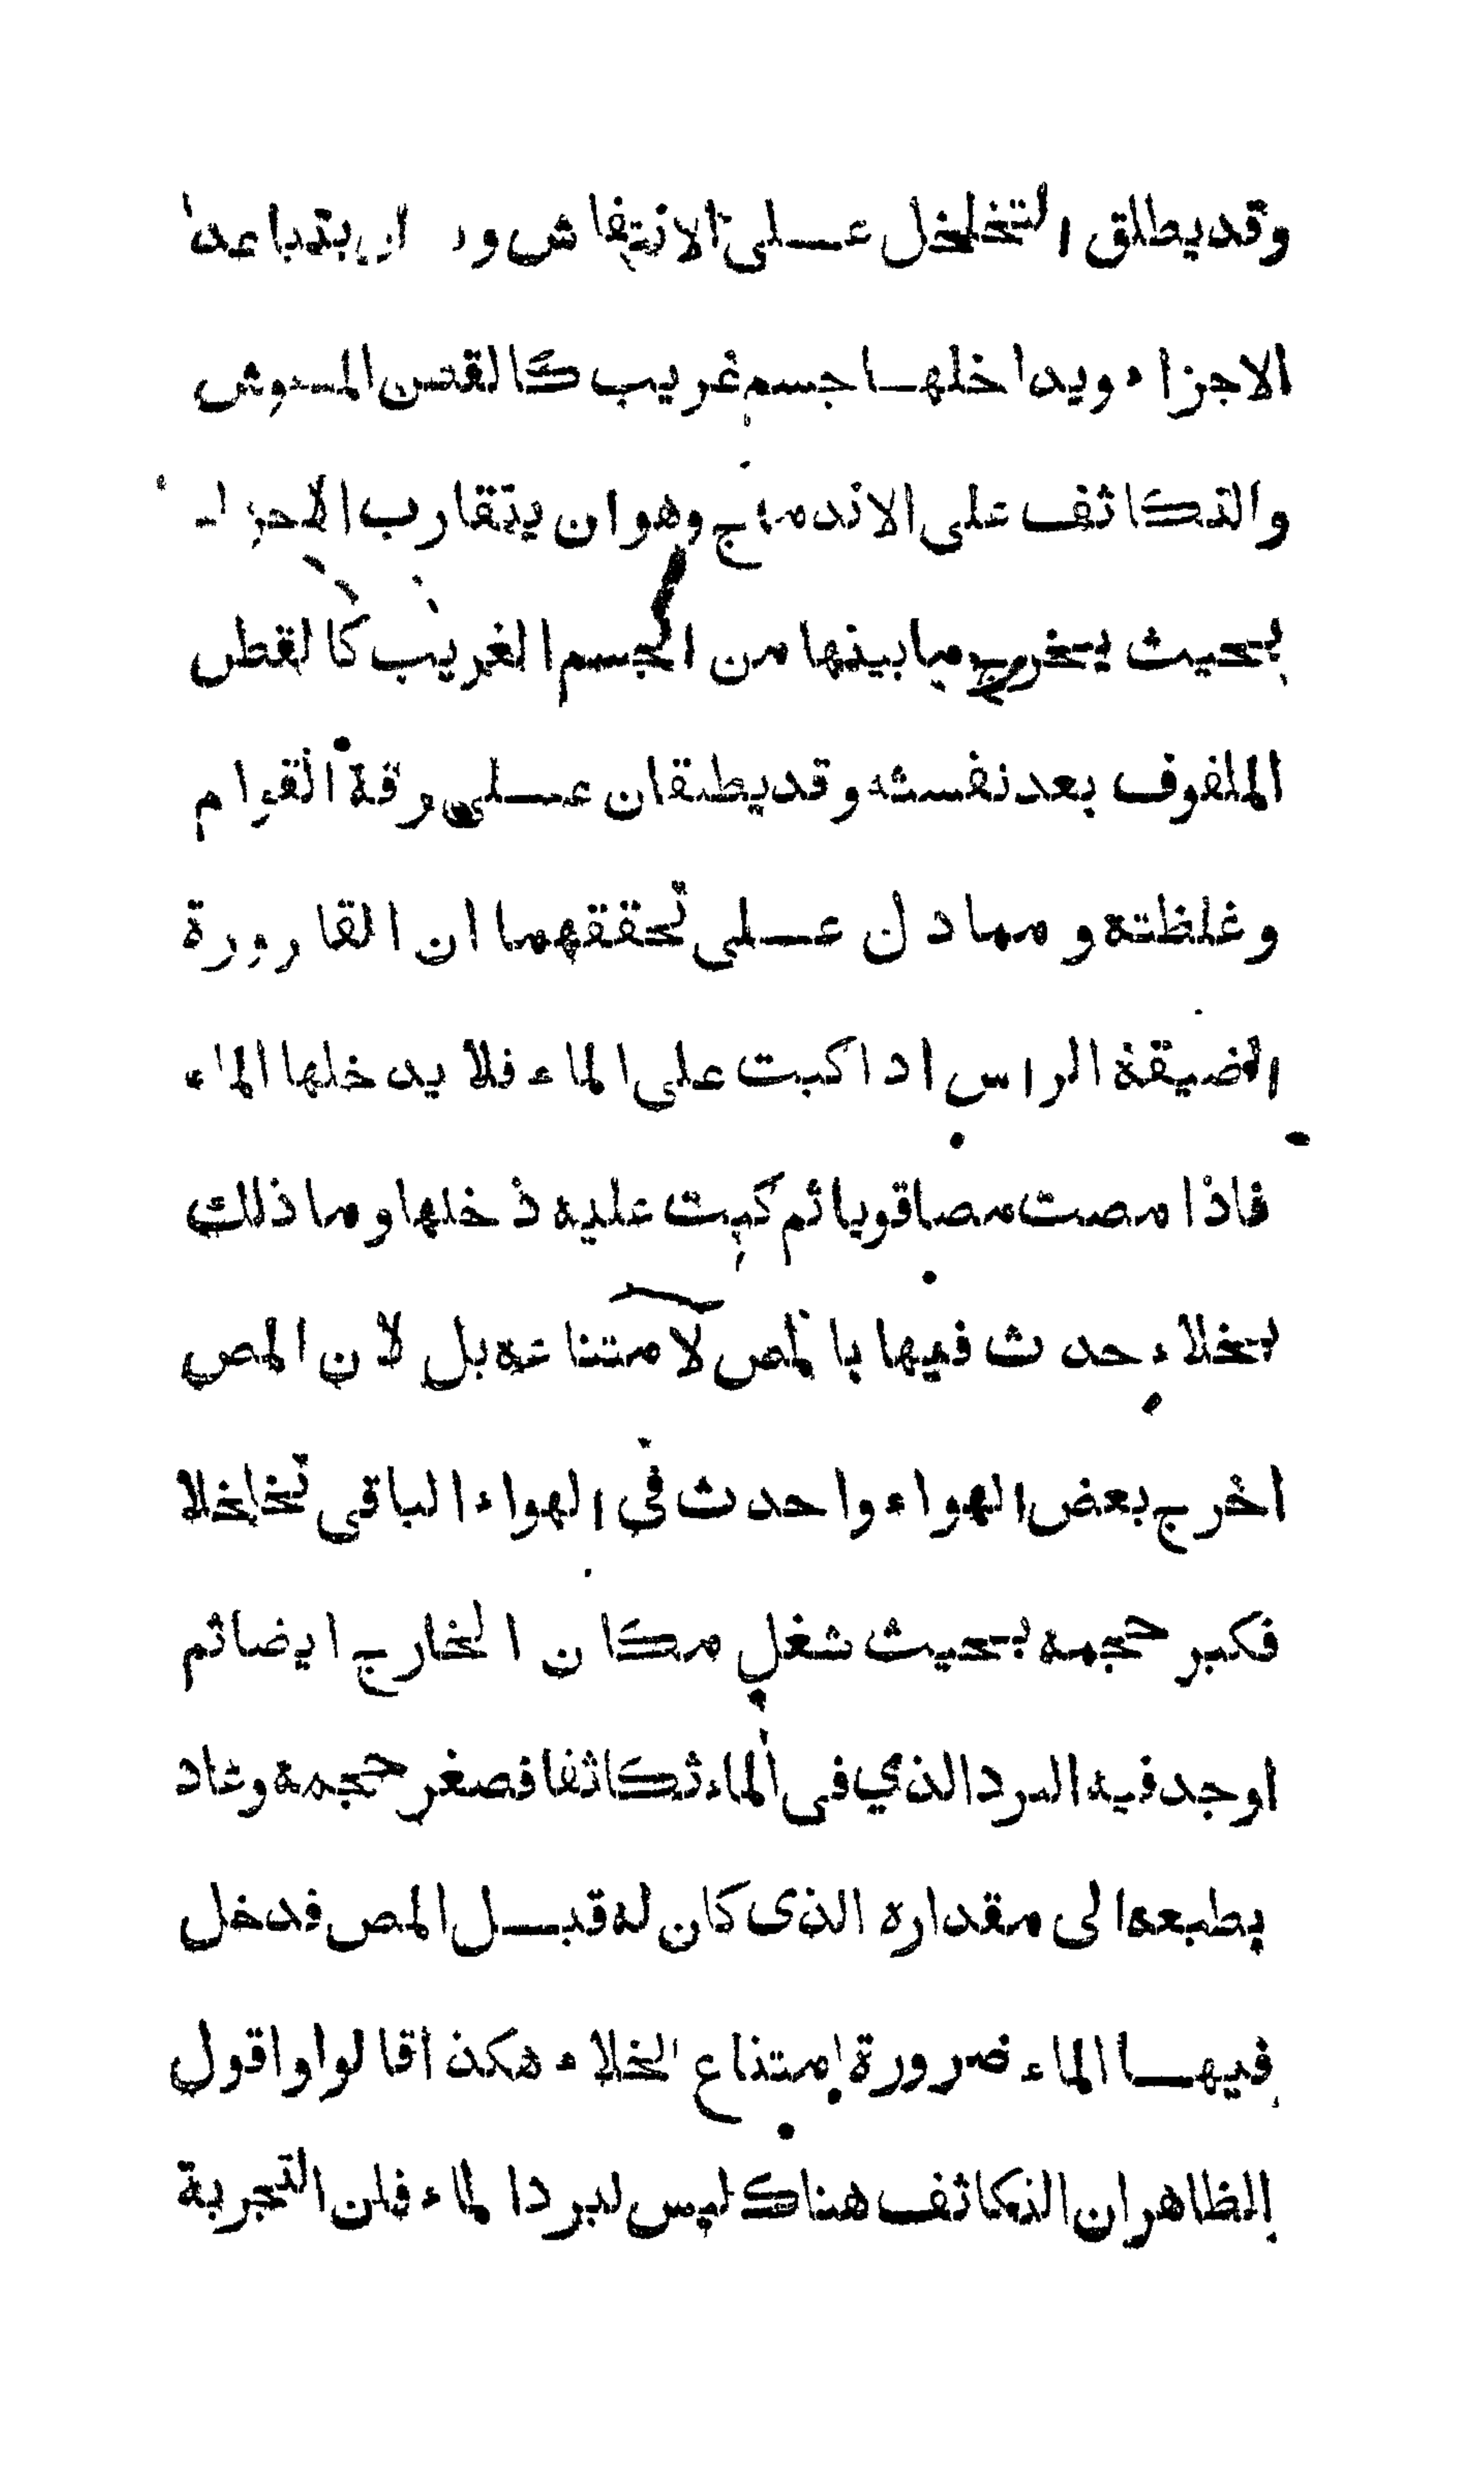 وقد يطلق التخلخل على الانتفاش و ان يتباعد
الاجزاء ويداخلها جسم غريب كالقطن المنفوش
والتكاثف على الاندماج وهو ان يتقارب الاجزاء
بحيث يخرج ما بينها من الجسم الغريب كالقطن
الملفوف بعد نفشه وقد يطلقان على رقة القوام
وغلظته ومما دل على تحققهما ان القارورة
الضيقة الراس اذا كبت على الماء فلا يدخلها الماء
فاذا مصت مصا قويا ثم كبت عليه دخلها وما ذلك
بخلاء حدث فيها بالمص لامتناعه بل لان المص
اخرج بعض الهواء واحدث في الهواء الباقى تخلخلا
فكبر حجمه بحيث شغل مكان الخارج ايضا ثم
اوجد فيه البرد الذي فى الماء تكاثفا فصغر حجمه وعاد
بطبعه الى مقداره الذى كان له قبل المص فدخل
فيها الماء ضرورة امتناع الخلاء هكذا قالوا واقول
الظاهر ان التكاثف هناك ليس لبرد الماء فان التجربة